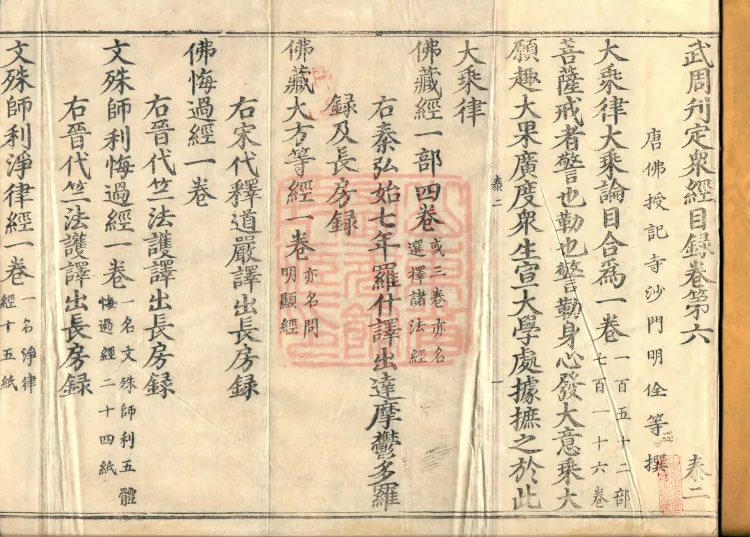 武周刊定衆經目録卷第六 泰二
唐佛授記寺沙門明佺等撰
大乘律大乘論目合爲一卷 一百五十二部 七百一十六卷
菩薩戒者警也勒也警勒身心發大意乘大
願趣大果廣度衆生宣大學處據摭之於此
泰二 一
大乘律
佛藏經一部四卷 或三卷亦名 選擇諸法經
右秦弘始七年羅什譯出達摩鬱多羅
録及長房録
佛藏大方等經一卷 亦名問 明顯經
右宋代釋道嚴譯出長房録
佛悔過經一卷
右晉代竺法護譯出長房録
文殊師利悔過經一卷 一名文殊師利五體 悔過經二十四紙
右晉代竺法護譯出長房録
文殊師利淨律經一卷 一名淨律 經十五紙